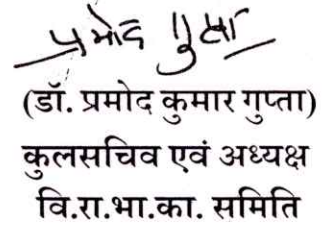 प्रमोद गुप्ता
(डॉ. प्रमोद कुमार गुप्ता)
कुलसचिव एवं अध्यक्ष
वि.रा.भा.का. समिति